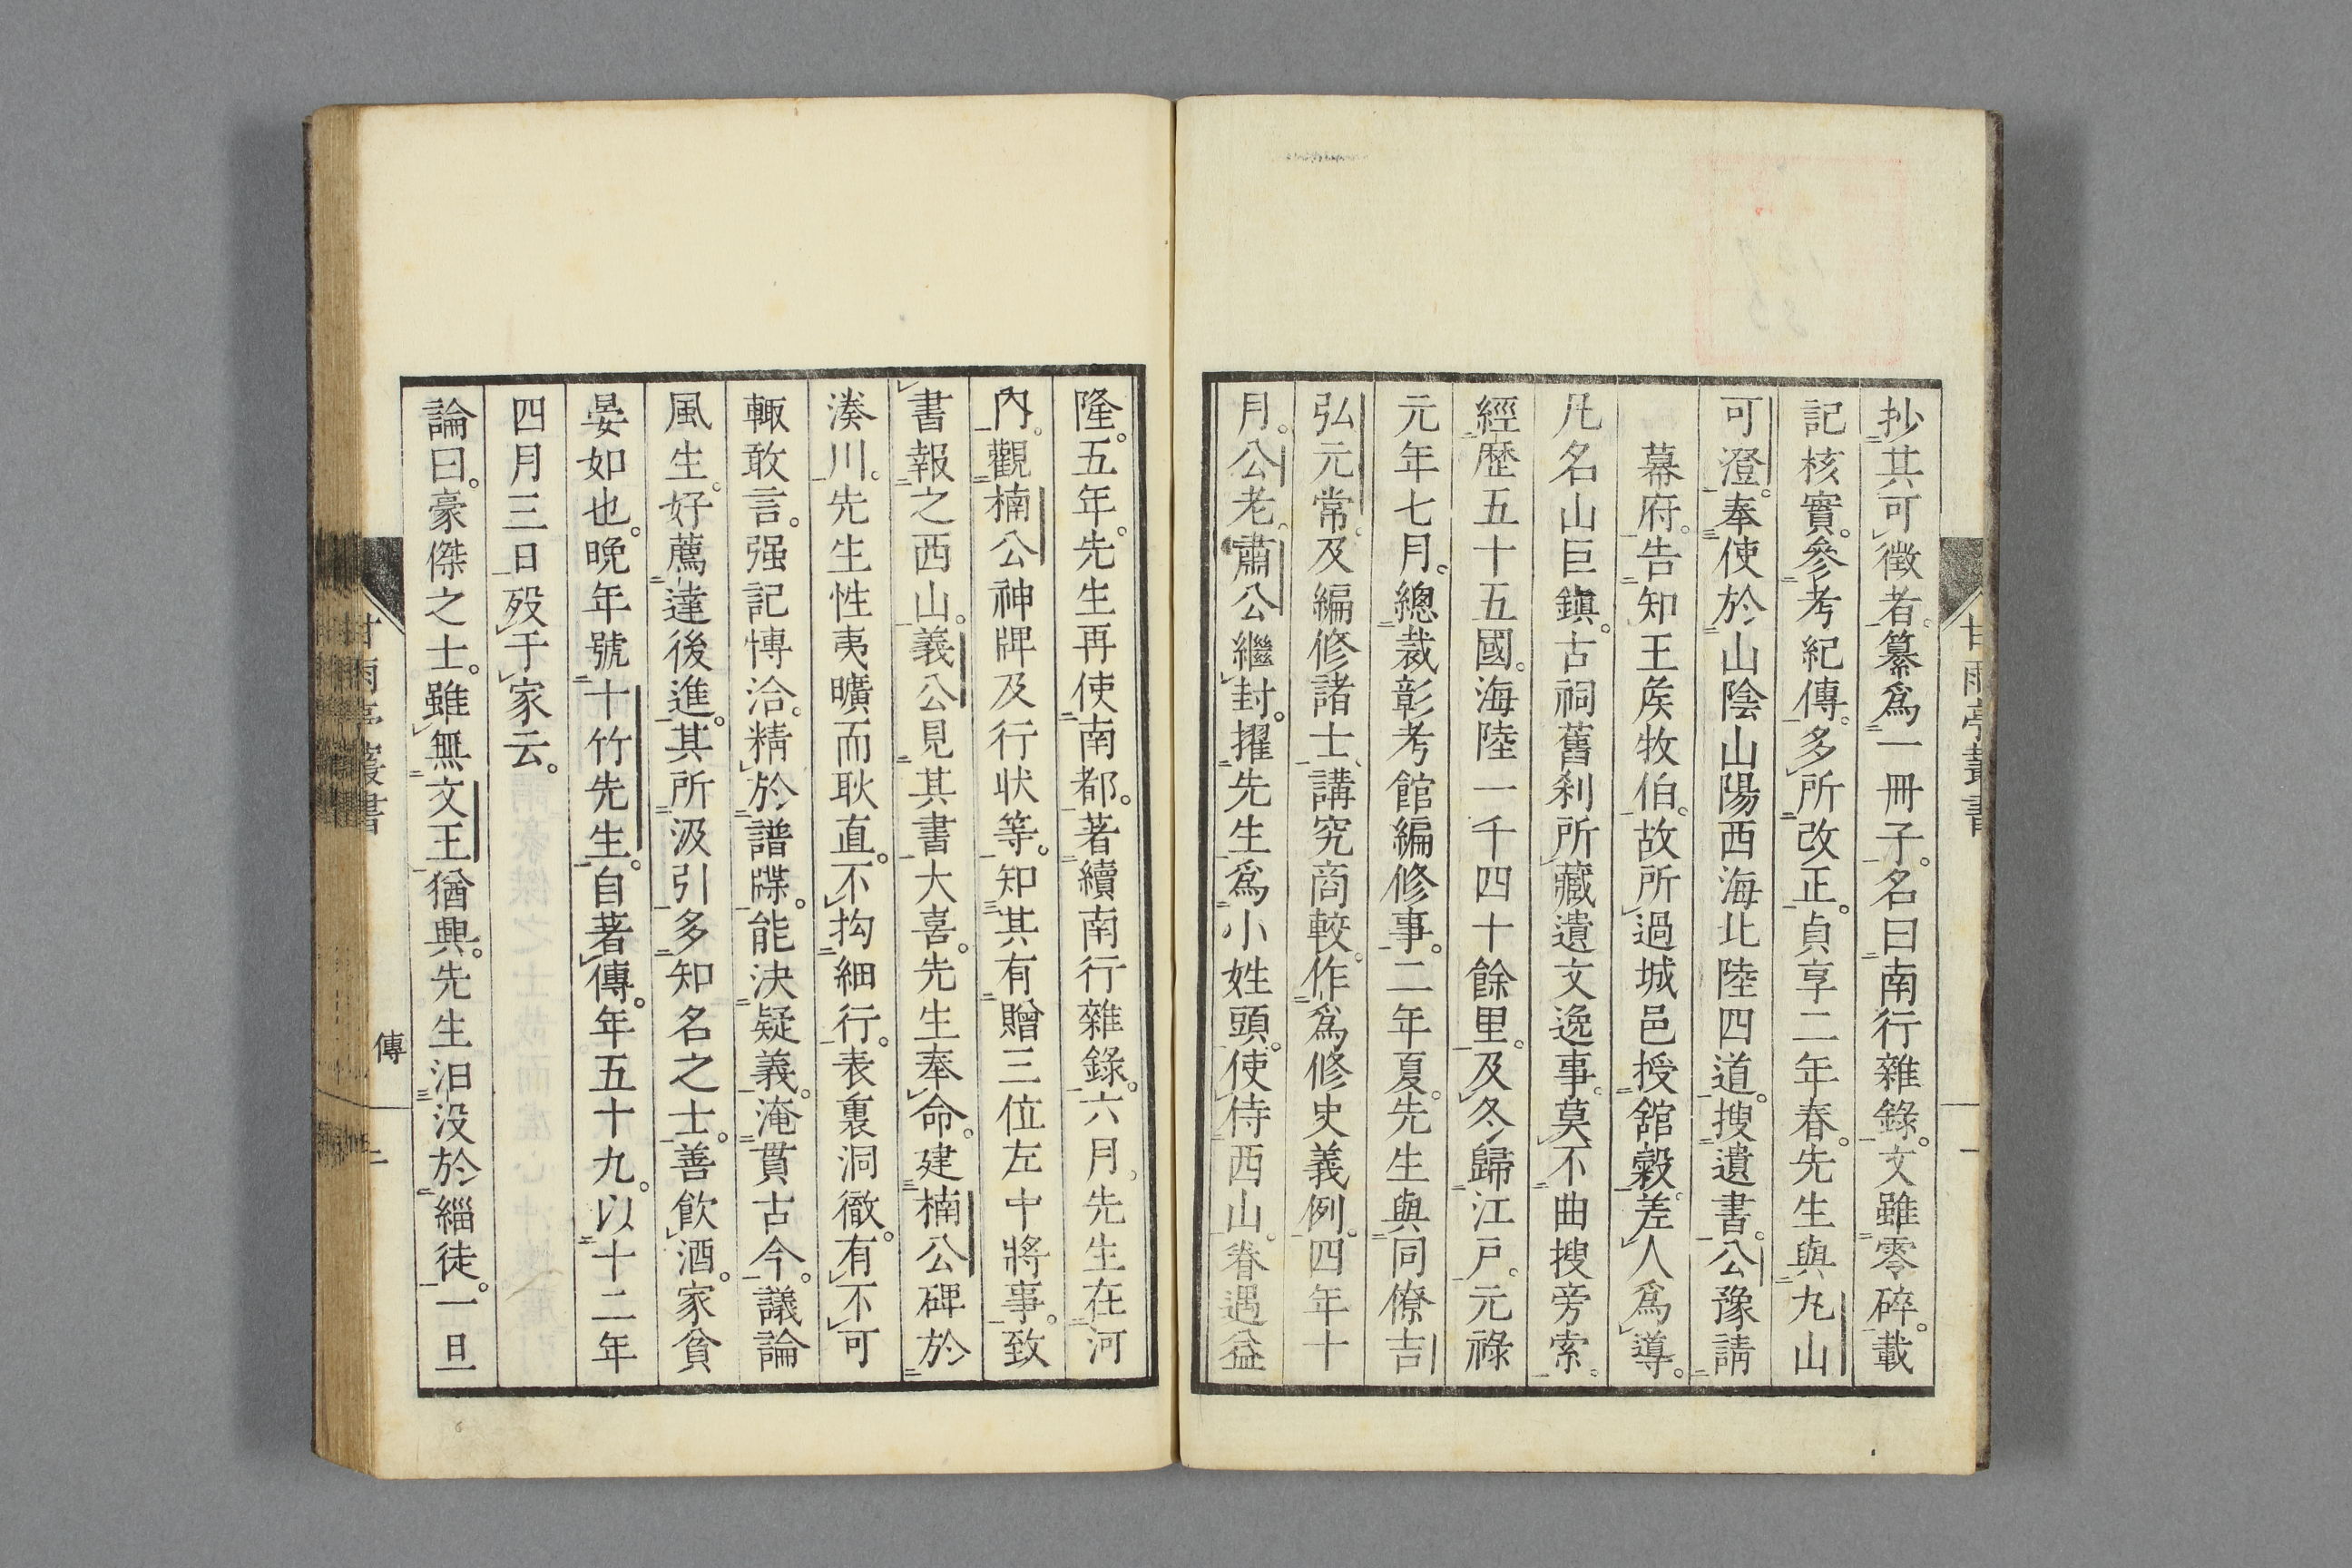 抄其可徵者。纂爲一冊子。名曰南行雜錄。文雖零碎。載
記核實。參考紀傳。多所改正。貞享二年春。先生與丸山
可澄。奉使於山陰山陽西海北陸四道。搜遺書。公豫請
幕府。告知王矦牧伯。故所過城邑授舘穀。差人爲導。
凡名山巨鎭。古祠舊刹所藏遺文逸事。莫不曲搜旁索。
經歷五十五國。海陸一千四十餘里。及冬歸江戸。元祿
元年七月。總裁彰考館編修事。二年夏。先生與同僚吉
弘元常。及編修諸士。講究商較。作爲修史義例。四年十
月。公老。肅公繼封。擢先生爲小姓頭。使侍西山。眷遇益
甘雨亭叢書
一
隆。五年。先生再使南都。著續南行雜錄。六月。先生在河
内。觀楠公神牌及行状等。知其有贈三位左中將事。致
書報之西山。義公見其書大喜。先生奉命。建楠公碑於
湊川。先生性夷曠而耿直。不拘細行。表裏洞徹。有不可
輙敢言。强記愽洽。精於譜牒。能決疑義。淹貫古今。議論
風生。好薦達後進。其所汲引多知名之士。善飮酒。家貧
晏如也。晩年號十竹先生。自著傳。年五十九。以十二年
四月三日歿于家云。
論曰。豪傑之士。雖無文王猶興。先生汩没於緇徒。一旦
甘雨亭叢書
傳
二